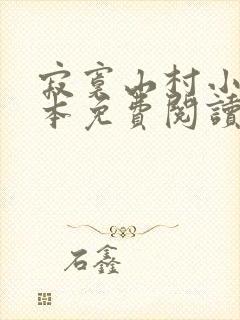 寂寞山村小
本免費閱讀
石鑫